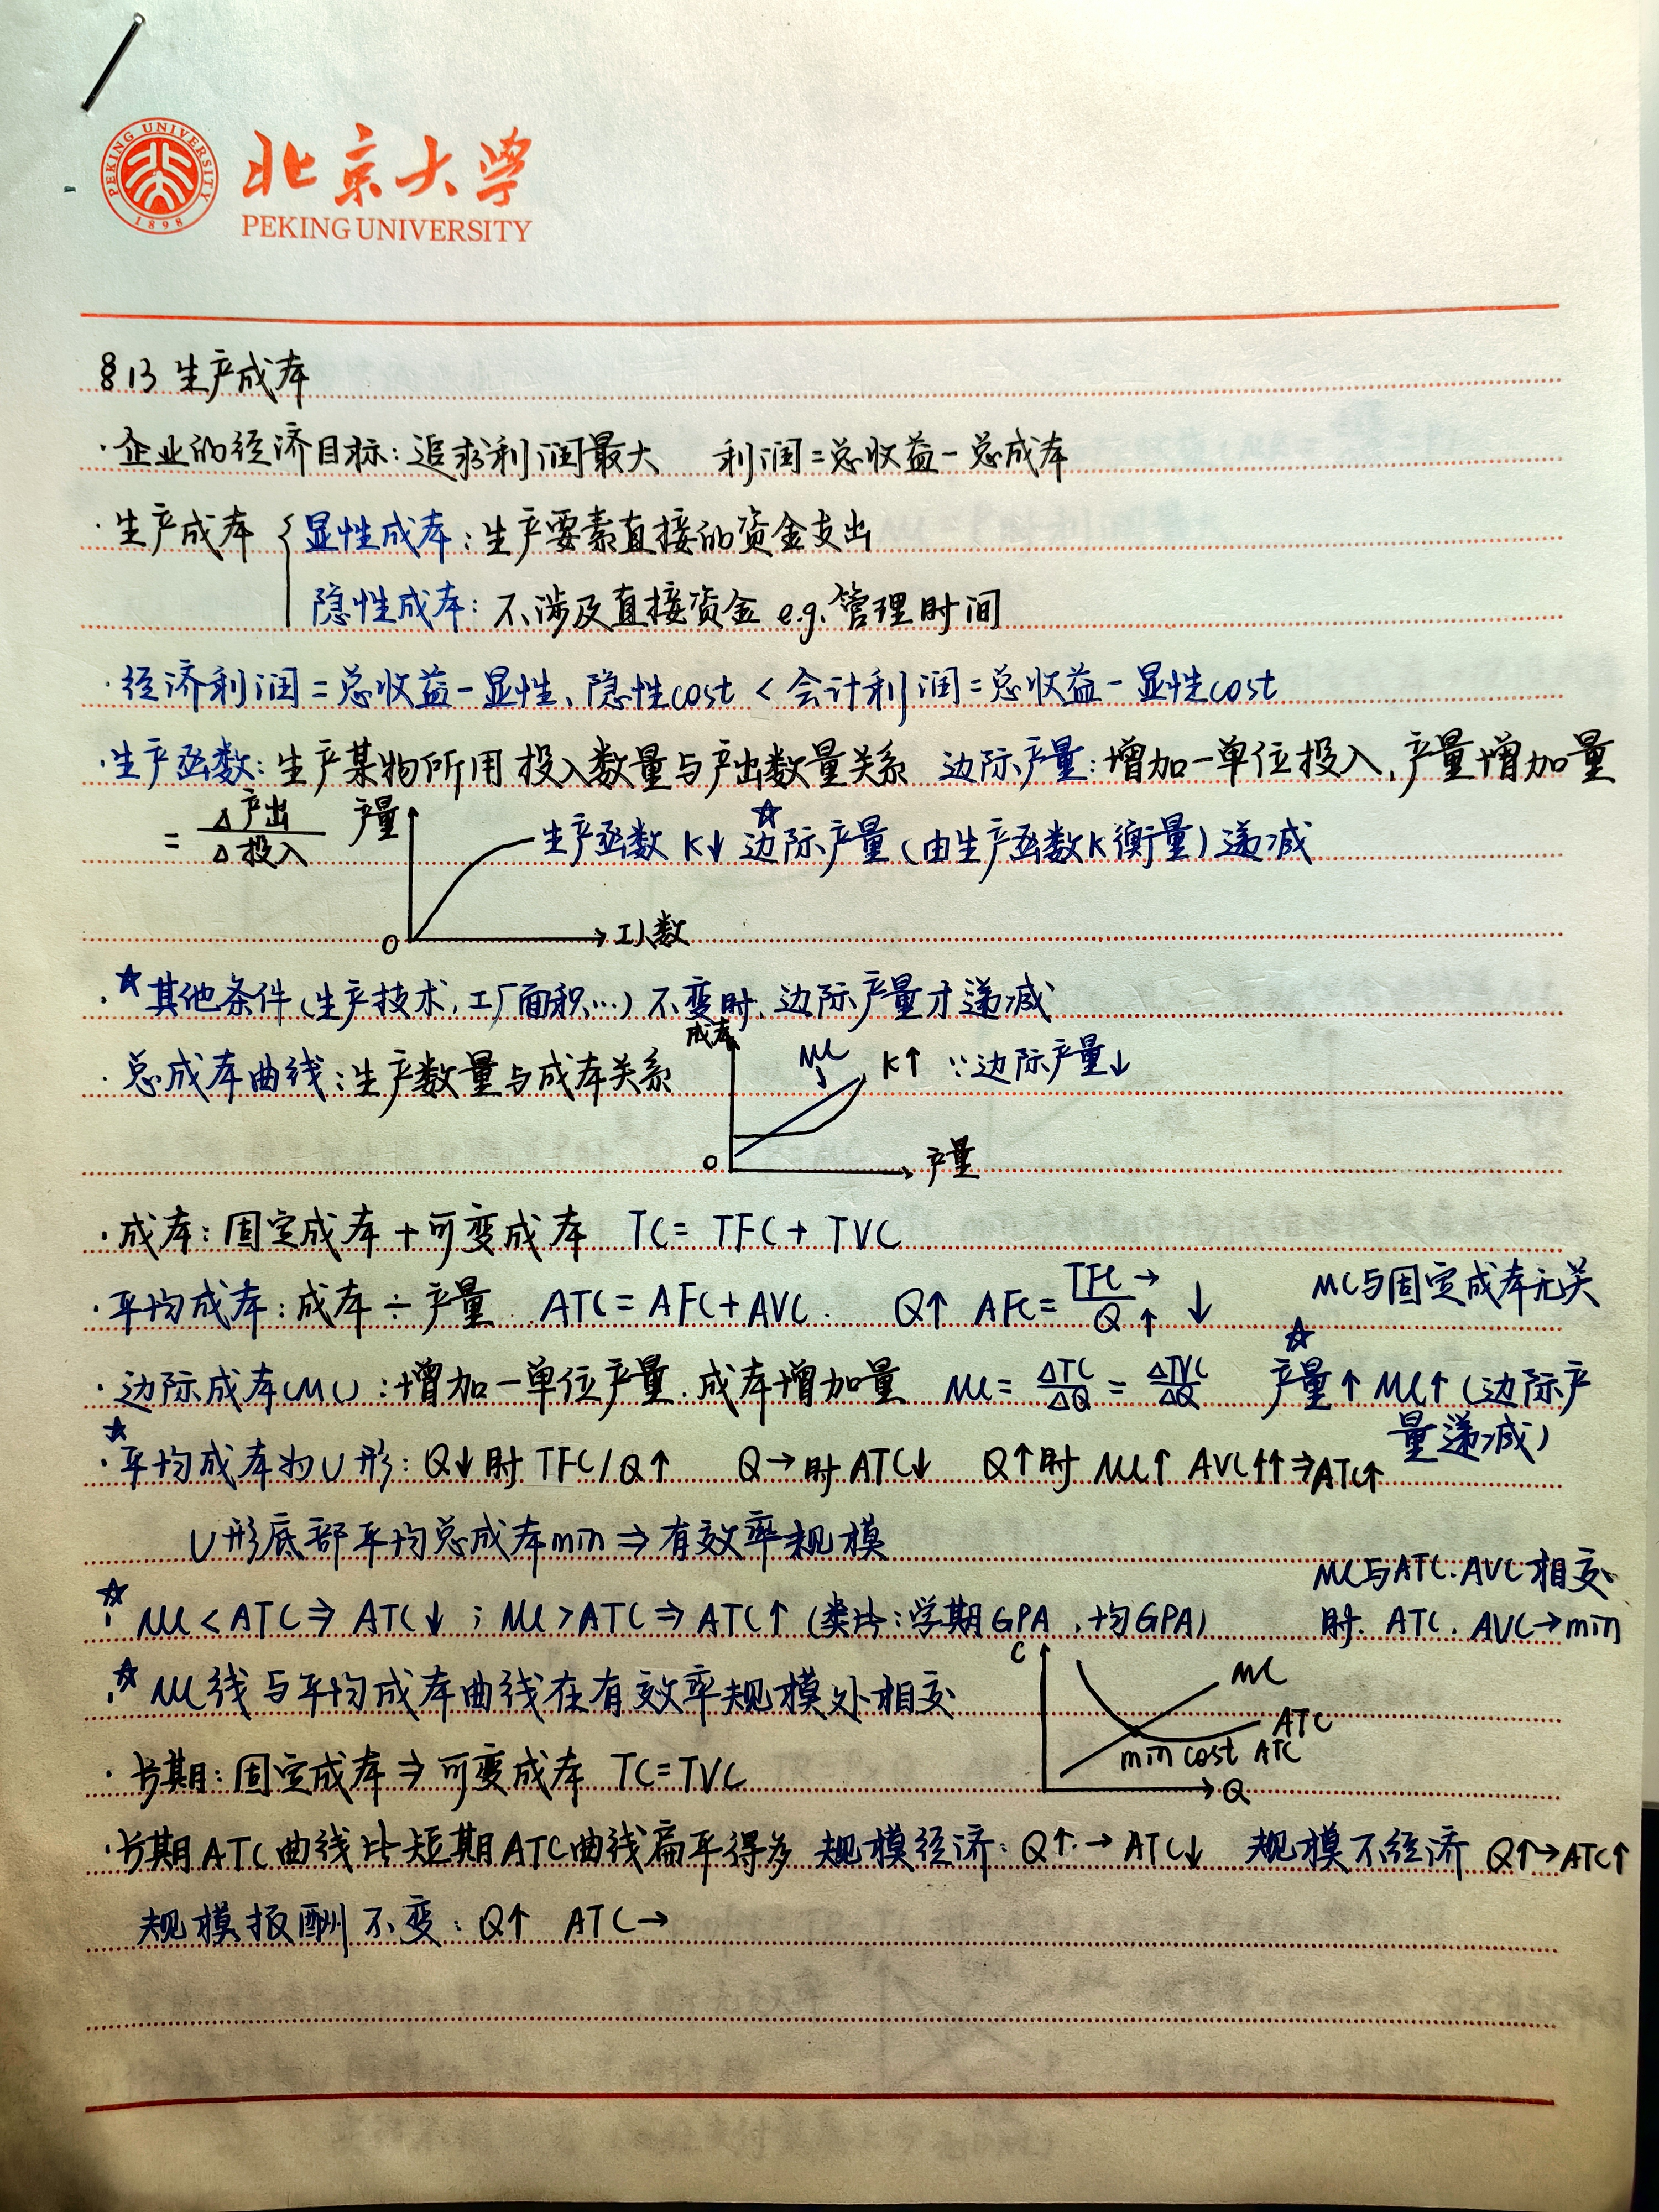 PEKING UNIVERSITY 1898
北京大学
PEKING UNIVERSITY
§13 生产成本
·企业的经济目标:追求利润最大 利润=总收益-总成本
·生产成本 { 显性成本:生产要素直接的资金支出
隐性成本:不涉及直接资金 e.g.管理时间
·经济利润=总收益-显性、隐性cost < 会计利润=总收益-显性cost
·生产函数:生产某物所用投入数量与产出数量关系 边际产量:增加一单位投入,产量增加量
= Δ产出/Δ投入 产量 生产函数 K↓ ☆边际产量(由生产函数K衡量)递减
O 工人数
·☆其他条件(生产技术,工厂面积…)不变时,边际产量才递减
·总成本曲线:生产数量与成本关系 成本 MC K↑ ∵边际产量↓
O 产量
·成本:固定成本+可变成本 TC=TFC+TVC
·平均成本:成本÷产量 ATC=AFC+AVC. Q↑ AFC=TFC→/Q↑ ↓ MC与固定成本无关
·边际成本(MC):增加一单位产量,成本增加量 MC=ΔTC/ΔQ=ΔTVC/ΔQ ☆产量↑ MC↑(边际产量递减)
·☆平均成本为U形:Q↓时 TFC/Q↑ Q→时 ATC↓ Q↑时 MC↑ AVC↑↑⇒ATC↑
U形底部平均总成本min⇒有效率规模
·☆MC<ATC⇒ATC↓;MC>ATC⇒ATC↑(类比:学期GPA,均GPA) MC与ATC.AVC相交时.ATC.AVC→min
·☆MC线与平均成本曲线在有效率规模处相交 C MC ATC min cost ATC Q
·长期:固定成本⇒可变成本 TC=TVC
·长期ATC曲线比短期ATC曲线扁平得多 规模经济:Q↑→ATC↓ 规模不经济 Q↑→ATC↑
规模报酬不变:Q↑ ATC→